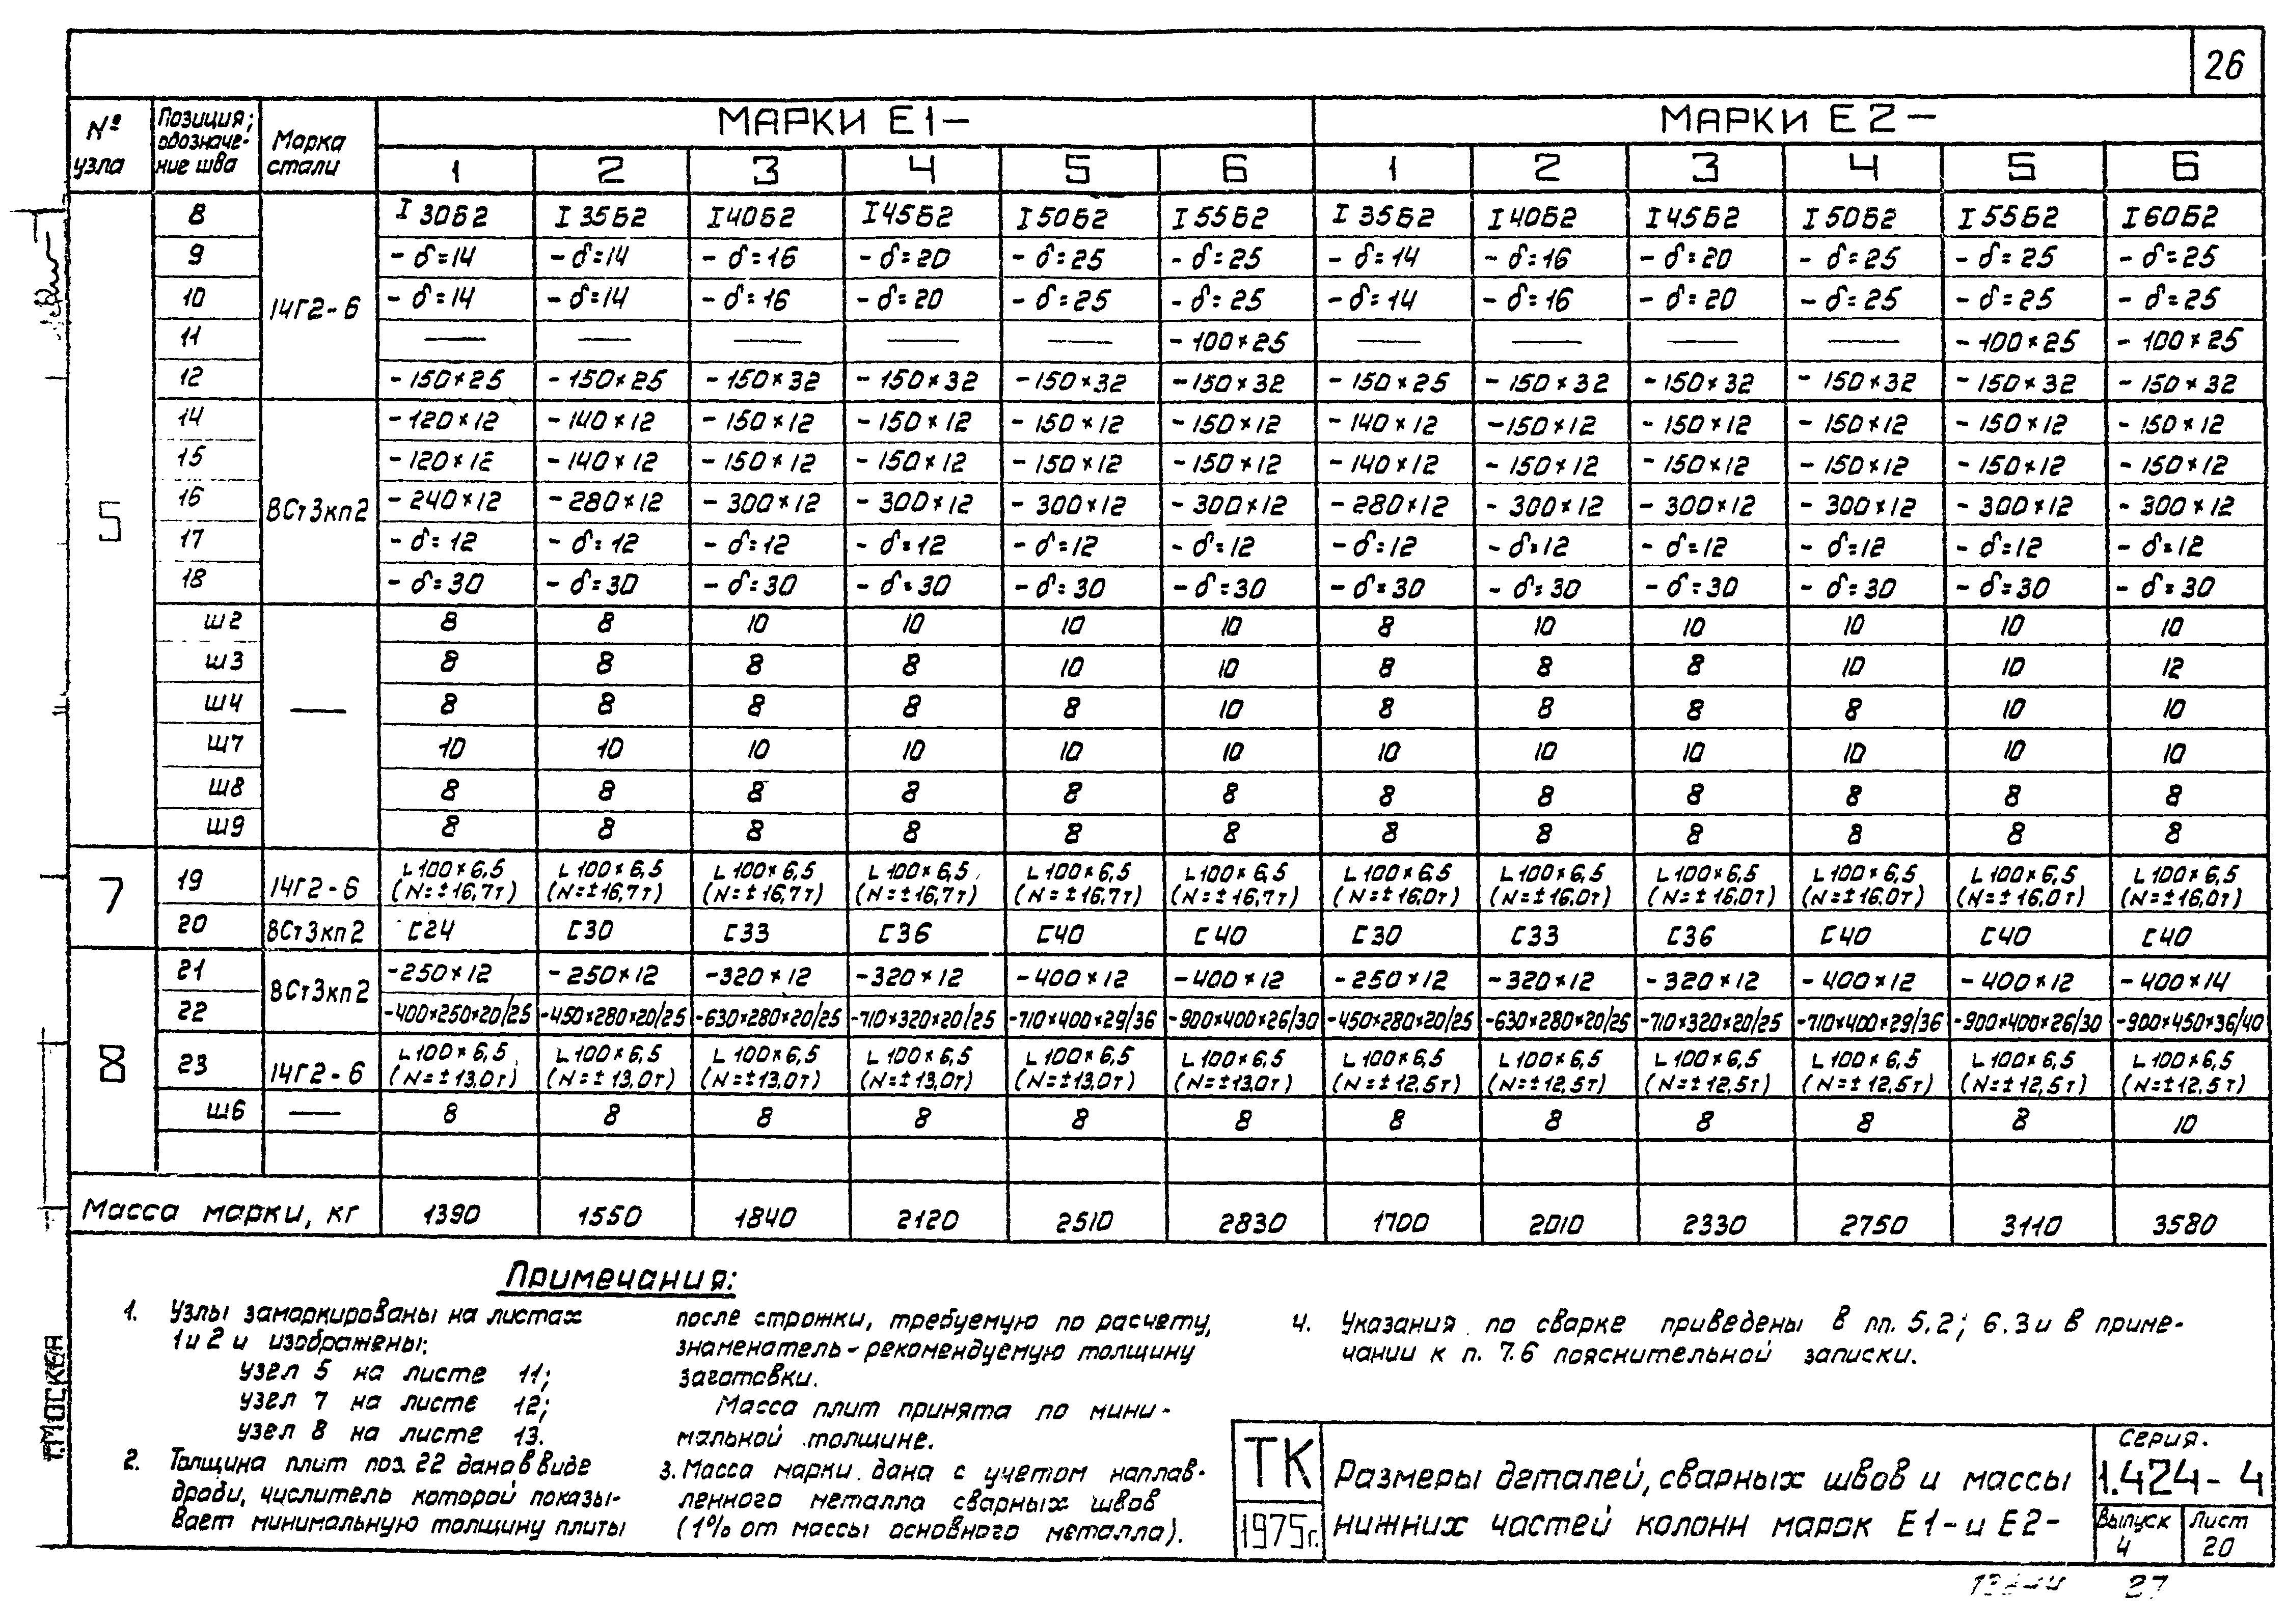 26
№ узла | Позиция; обозначение шва | Марка стали | МАРКИ Е1– | МАРКИ Е2–
1 | 2 | 3 | 4 | 5 | 6 | 1 | 2 | 3 | 4 | 5 | 6
5 | 8 | 14Г2-6 | I 30Б2 | I 35Б2 | I 40Б2 | I 45Б2 | I 50Б2 | I 55Б2 | I 35Б2 | I 40Б2 | I 45Б2 | I 50Б2 | I 55Б2 | I 60Б2
9 | - δ=14 | - δ=14 | - δ=16 | - δ=20 | - δ=25 | - δ=25 | - δ=14 | - δ=16 | - δ=20 | - δ=25 | - δ=25 | - δ=25
10 | - δ=14 | - δ=14 | - δ=16 | - δ=20 | - δ=25 | - δ=25 | - δ=14 | - δ=16 | - δ=20 | - δ=25 | - δ=25 | - δ=25
11 | — | — | — | — | — | -100×25 | — | — | — | — | -100×25 | -100×25
12 | -150×25 | -150×25 | -150×32 | -150×32 | -150×32 | -150×32 | -150×25 | -150×32 | -150×32 | -150×32 | -150×32 | -150×32
14 | ВСт3кп2 | -120×12 | -140×12 | -150×12 | -150×12 | -150×12 | -150×12 | -140×12 | -150×12 | -150×12 | -150×12 | -150×12 | -150×12
15 | -120×12 | -140×12 | -150×12 | -150×12 | -150×12 | -150×12 | -140×12 | -150×12 | -150×12 | -150×12 | -150×12 | -150×12
16 | -240×12 | -280×12 | -300×12 | -300×12 | -300×12 | -300×12 | -280×12 | -300×12 | -300×12 | -300×12 | -300×12 | -300×12
17 | - δ=12 | - δ=12 | - δ=12 | - δ=12 | - δ=12 | - δ=12 | - δ=12 | - δ=12 | - δ=12 | - δ=12 | - δ=12 | - δ=12
18 | - δ=30 | - δ=30 | - δ=30 | - δ=30 | - δ=30 | - δ=30 | - δ=30 | - δ=30 | - δ=30 | - δ=30 | - δ=30 | - δ=30
ш2 | — | 8 | 8 | 10 | 10 | 10 | 10 | 8 | 10 | 10 | 10 | 10 | 10
ш3 | 8 | 8 | 8 | 8 | 10 | 10 | 8 | 8 | 8 | 10 | 10 | 12
ш4 | 8 | 8 | 8 | 8 | 8 | 10 | 8 | 8 | 8 | 8 | 10 | 10
ш7 | 10 | 10 | 10 | 10 | 10 | 10 | 10 | 10 | 10 | 10 | 10 | 10
ш8 | 8 | 8 | 8 | 8 | 8 | 8 | 8 | 8 | 8 | 8 | 8 | 8
ш9 | 8 | 8 | 8 | 8 | 8 | 8 | 8 | 8 | 8 | 8 | 8 | 8
7 | 19 | 14Г2-6 | L 100×6,5 (N=±16,7т) | L 100×6,5 (N=±16,7т) | L 100×6,5 (N=±16,7т) | L 100×6,5 (N=±16,7т) | L 100×6,5 (N=±16,7т) | L 100×6,5 (N=±16,7т) | L 100×6,5 (N=±16,0т) | L 100×6,5 (N=±16,0т) | L 100×6,5 (N=±16,0т) | L 100×6,5 (N=±16,0т) | L 100×6,5 (N=±16,0т) | L 100×6,5 (N=±16,0т)
20 | ВСт3кп2 | [24 | [30 | [33 | [36 | [40 | [40 | [30 | [33 | [36 | [40 | [40 | [40
8 | 21 | ВСт3кп2 | -250×12 | -250×12 | -320×12 | -320×12 | -400×12 | -400×12 | -250×12 | -320×12 | -320×12 | -400×12 | -400×12 | -400×14
22 | -400×250×20/25 | -450×280×20/25 | -630×280×20/25 | -710×320×20/25 | -710×400×29/36 | -900×400×26/30 | -450×280×20/25 | -630×280×20/25 | -710×320×20/25 | -710×400×29/36 | -900×400×26/30 | -900×450×36/40
23 | 14Г2-6 | L 100×6,5 (N=±13,0т) | L 100×6,5 (N=±13,0т) | L 100×6,5 (N=±13,0т) | L 100×6,5 (N=±13,0т) | L 100×6,5 (N=±13,0т) | L 100×6,5 (N=±13,0т) | L 100×6,5 (N=±12,5т) | L 100×6,5 (N=±12,5т) | L 100×6,5 (N=±12,5т) | L 100×6,5 (N=±12,5т) | L 100×6,5 (N=±12,5т) | L 100×6,5 (N=±12,5т)
ш6 | — | 8 | 8 | 8 | 8 | 8 | 8 | 8 | 8 | 8 | 8 | 8 | 10
Масса марки, кг | 1390 | 1550 | 1840 | 2120 | 2510 | 2830 | 1700 | 2010 | 2330 | 2750 | 3110 | 3580
Примечания:
1. Узлы замаркированы на листах
1 и 2 и изображены:
узел 5 на листе 11;
узел 7 на листе 12;
узел 8 на листе 13.
2. Толщина плит поз. 22 дана в виде
дроби, числитель которой показы-
вает минимальную толщину плиты
после строжки, требуемую по расчету,
знаменатель - рекомендуемую толщину
заготовки.
Масса плит принята по мини-
мальной толщине.
3. Масса марки дана с учетом наплав-
ленного металла сварных швов
(1% от массы основного металла).
4. Указания по сварке приведены в пп. 5.2; 6.3 и в приме-
чании к п. 7.6 пояснительной записки.
ТК
1975г.
Размеры деталей, сварных швов и массы
нижних частей колонн марок Е1- и Е2-
Серия.
1.424-4
Выпуск
4
Лист
20
г.МОСКВА
27